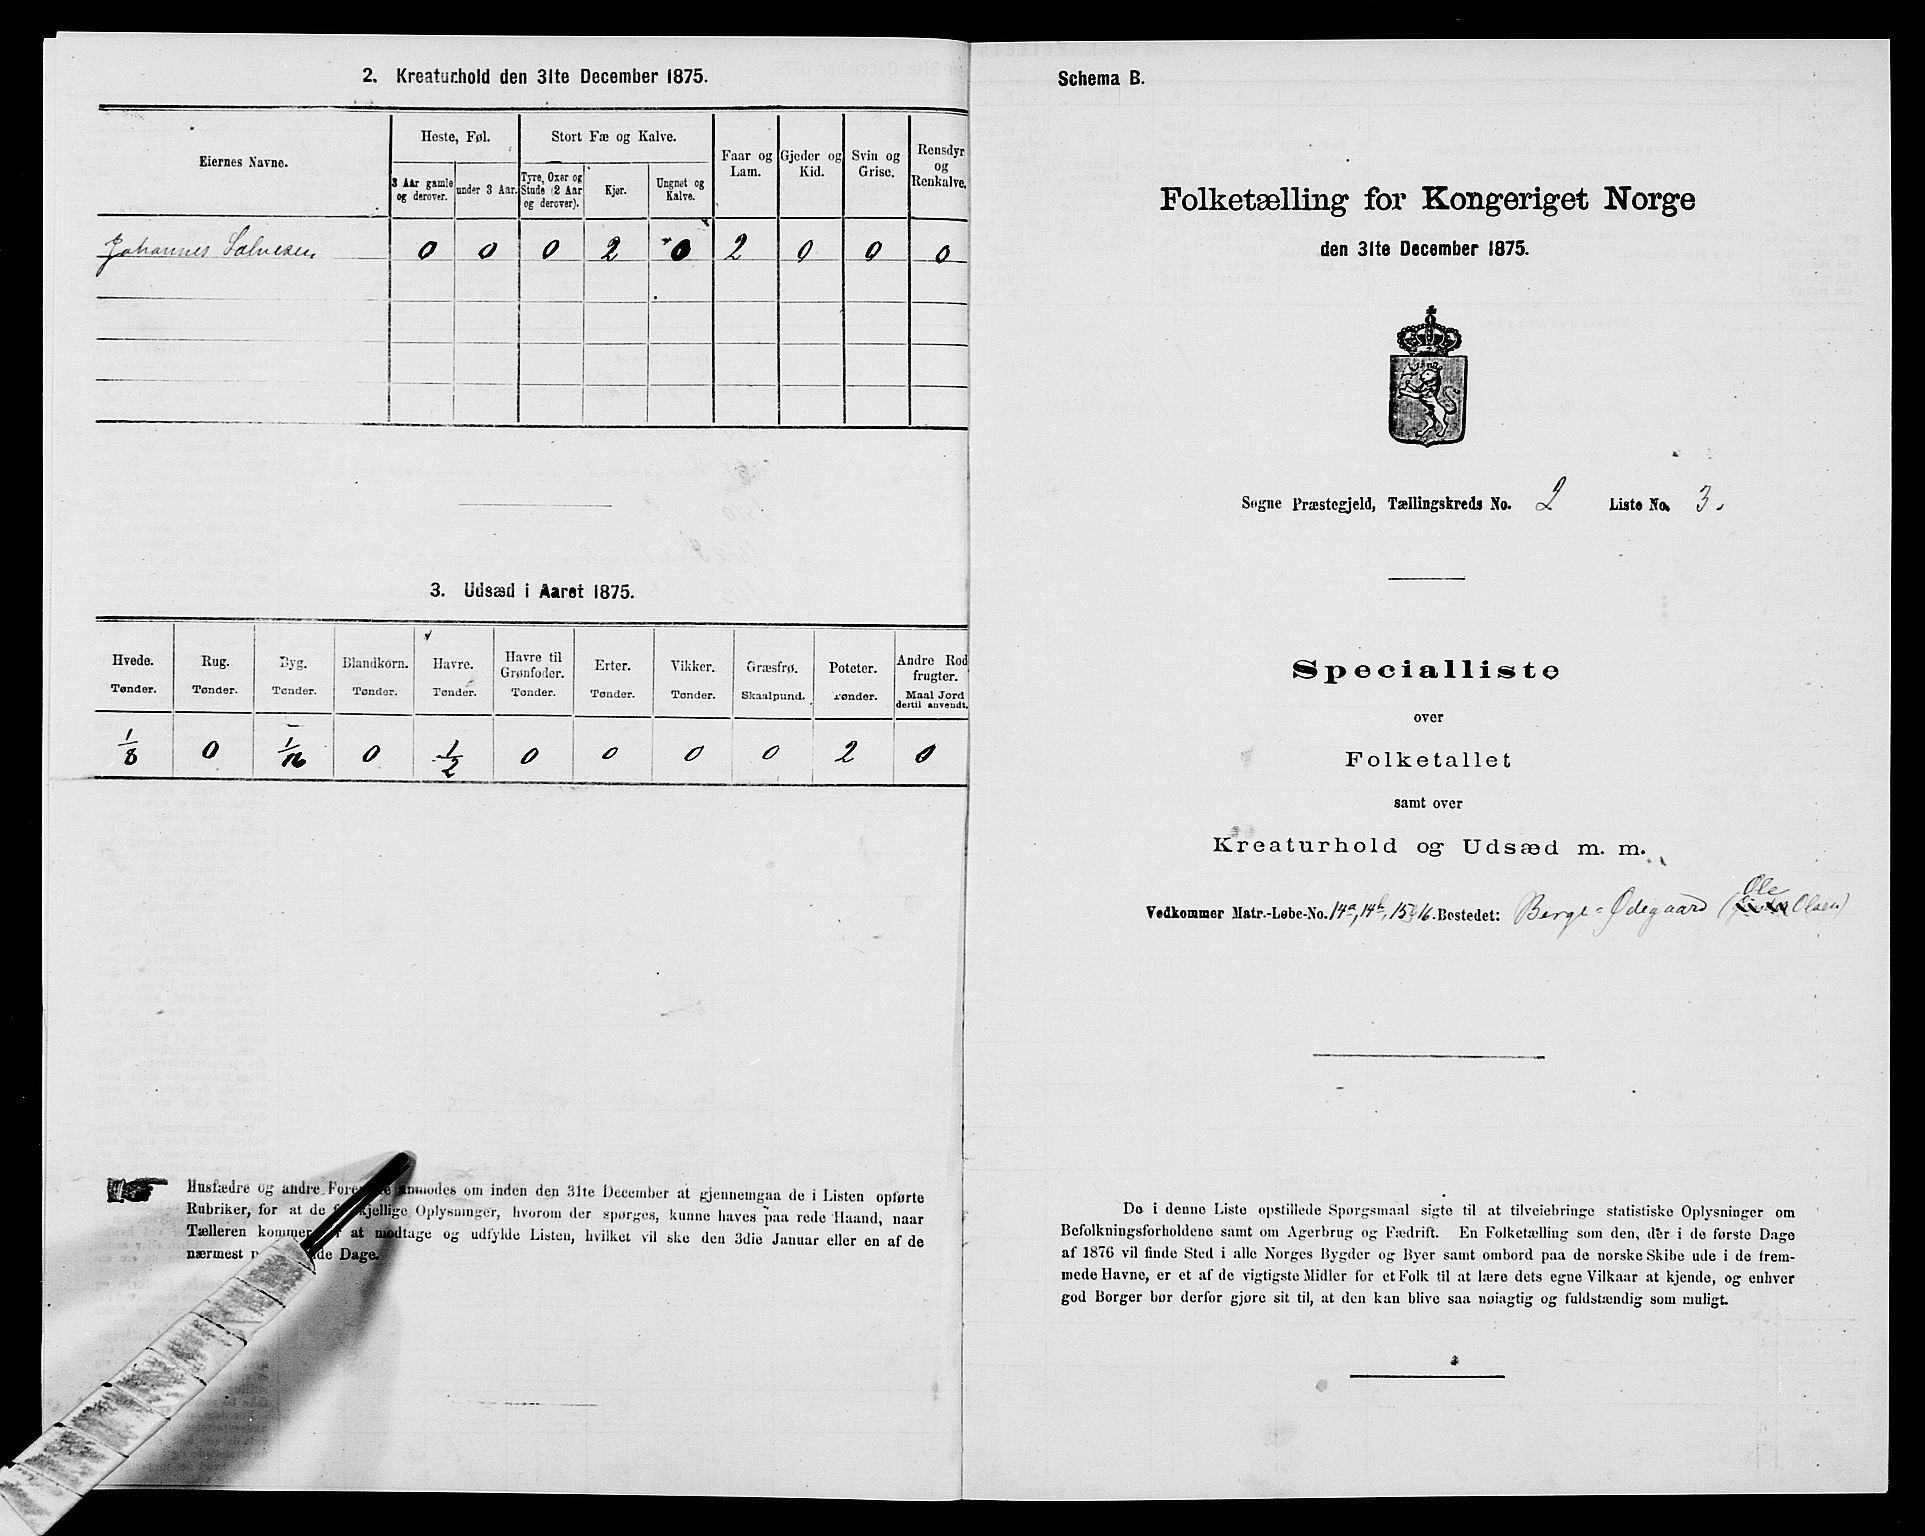 2. Kreaturhold den 31te December 1875.
Eiernes Navne.
Heste, Føl.
3 Aar gamle og derover.
under 3 Aar.
Stort Fæ og Kalve.
Tyre, Oxer og Stude (2 Aar og derover).
Kjør.
Ungnet og Kalve.
Faar og Lam.
Gjeder og Kid.
Svin og Grise.
Rensdyr og Renkalve.
Johannes Salvesen 0 0 0 2 0 2 0 0 0
3. Udsæd i Aaret 1875.
Hvede. Rug. Byg. Blandkorn. Havre. Havre til Grønfoder. Erter. Vikker. Græsfrø. Poteter. Andre Rodfrugter.
Tønder. Tønder. Tønder. Tønder. Tønder. Tønder. Tønder. Tønder. Skaalpund. Tønder. Maal Jord dertil anvendt.
1/8 0 1/16 0 1/2 0 0 0 0 2 0
Husfædre og andre anmodes om inden den 31te December at gjennemgaa de i Listen opførte
Rubriker, for at de Oplysninger, hvorom der spørges, kunne haves paa rede Haand, naar
Tælleren kommer at modtage og udfylde Listen, hvilket vil ske den 3die Januar eller en af de
nærmest Dage.
Schema B.
Folketælling for Kongeriget Norge
den 31te December 1875.
Sogne Præstegjeld, Tællingskreds No. 2 Liste No. 3.
Specialliste
over
Folketallet
samt over
Kreaturhold og Udsæd m. m.
Vedkommer Matr.-Løbe-No. 14a, 14b, 15 & 16. Bostedet: Berge = Ødegaard (Ole Olsen)
De i denne Liste opstillede Spørgsmaal sigte til at tilveiebringe statistiske Oplysninger om
Befolkningsforholdene samt om Agerbrug og Fædrift. En Folketælling som den, der i de første Dage
af 1876 vil finde Sted i alle Norges Bygder og Byer samt ombord paa de norske Skibe ude i de frem-
mede Havne, er et af de vigtigste Midler for et Folk til at lære dets egne Vilkaar at kjende, og enhver
god Borger bør derfor gjøre sit til, at den kan blive saa nøiagtig og fuldstændig som muligt.